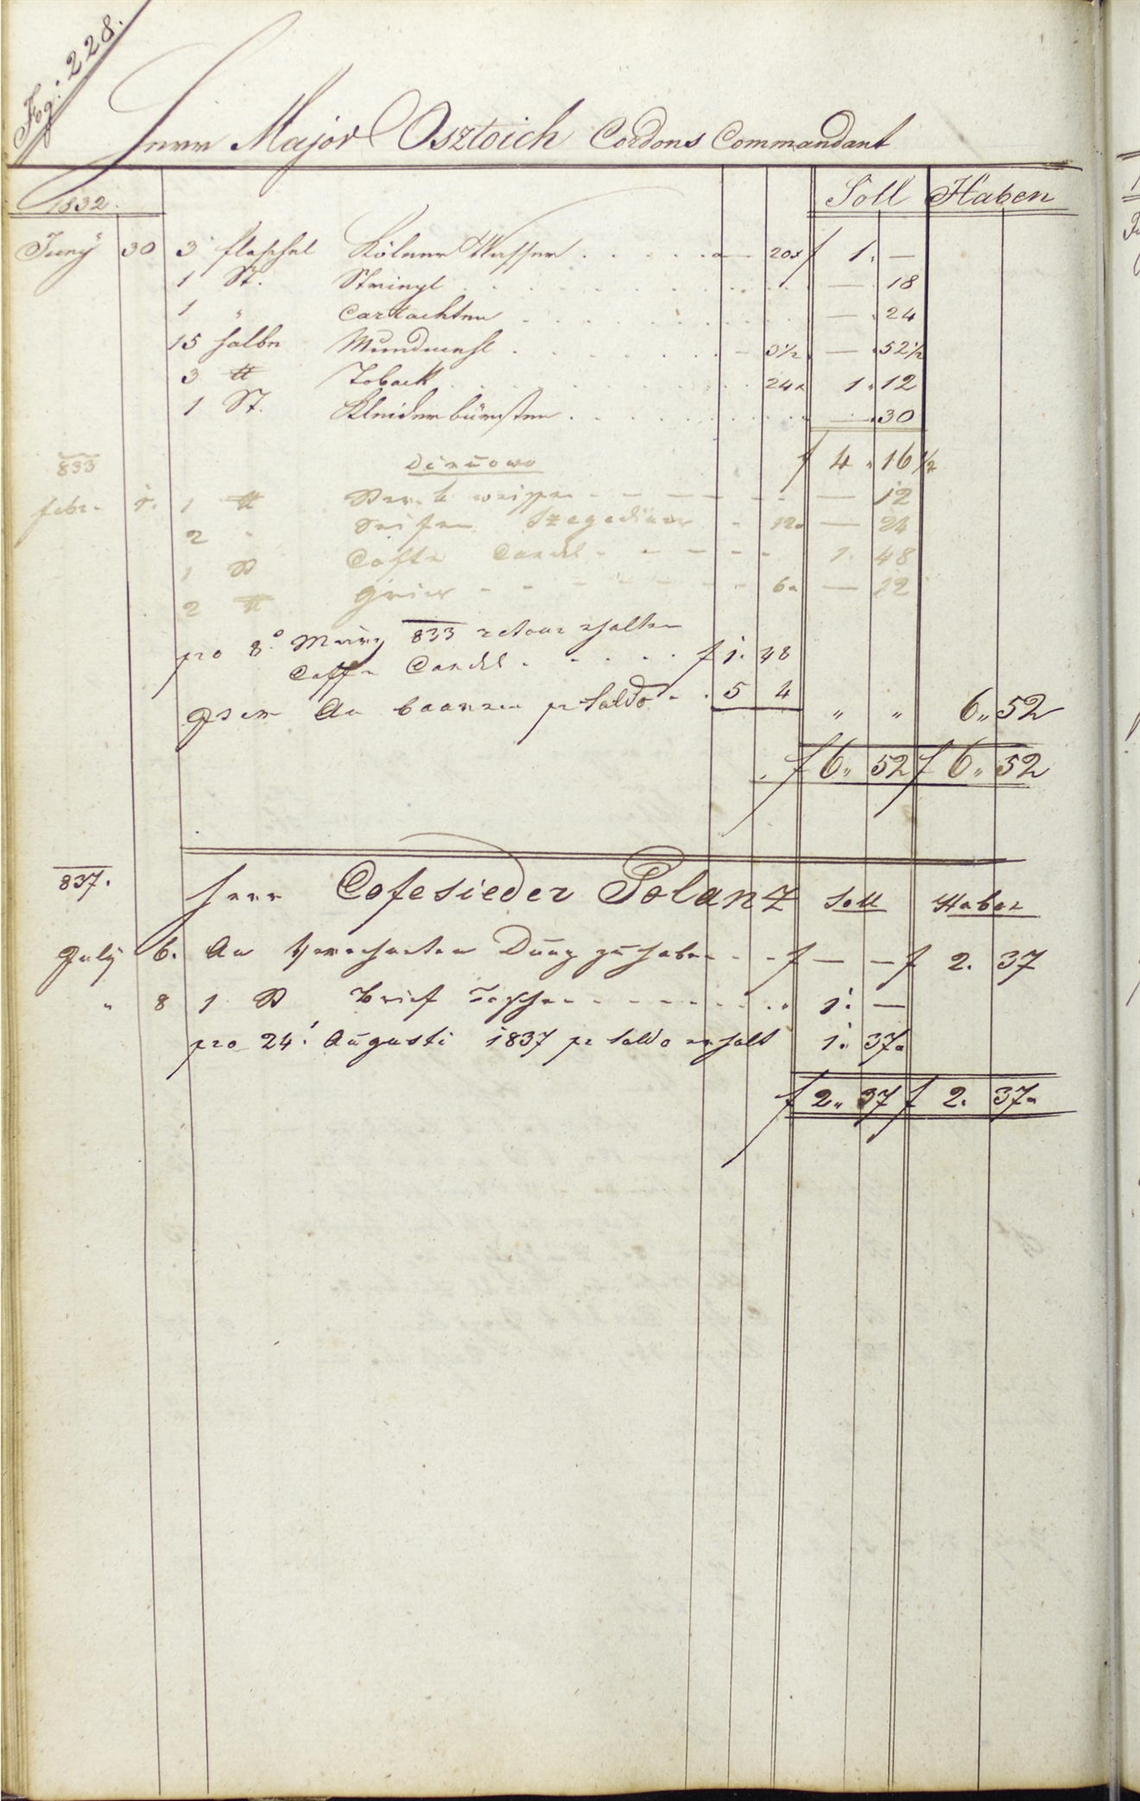 Fg: 228.
Herr Major Osztoich Cordons Commandant
1832. Soll Haben
Juny 30 3 flaschel Kölner Wasser 20x f 1. —
1 St. Striegl — 18
1 " Cartachten — 24
15 halbe Mundmehl 3½ — 52½
3 ℔ Toback 24x 1. 12
1 St. Kleiderbürsten — 30
f 4. 16½
833
febr. 1. 1 ℔ weisse — 12
2 " Seifen Szegediner 12x — 24
1 ℔ Caffe Candel 1. 48
2 ℔ Gries 6x — 12
pro 8º 833 retour erhalten
Caffe Candel f 1. 48
An baaren pr Saldo 5 4 " " 6.. 52
f 6.. 52 f 6.. 52
837. Herr Cofesieder Polanz Soll Haben
July 6. An Dung zu haben f — — f 2. 37
" 8 1 Brief 1. —
pro 24. Augusti 1837 pr Saldo erhalt 1. 37
f 2.. 37 f 2. 37